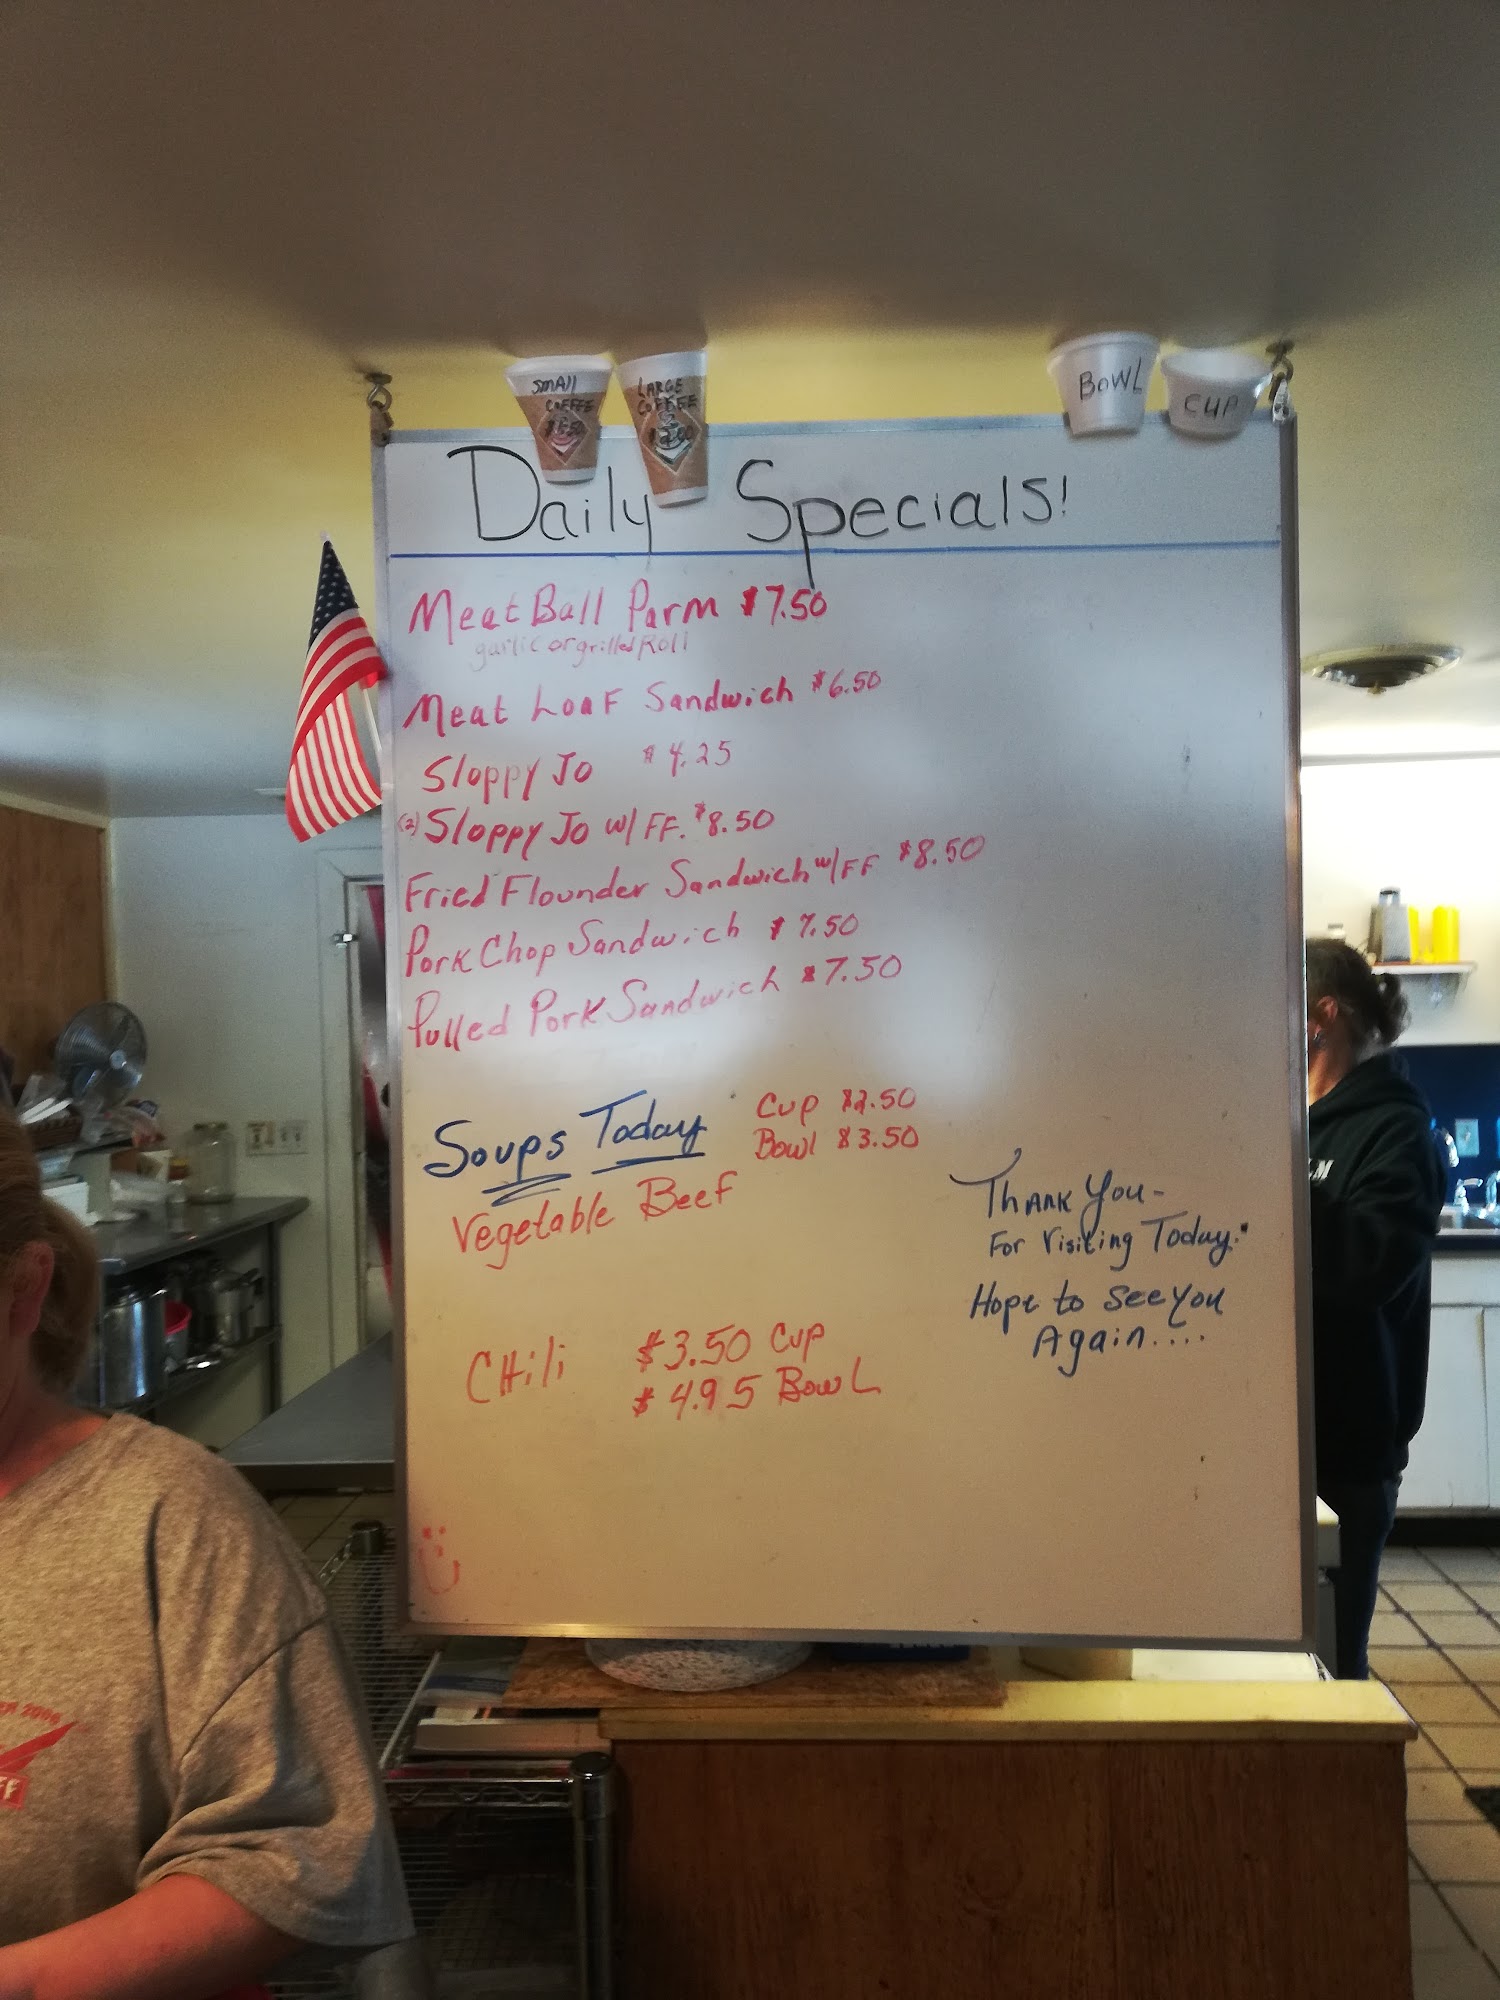 SMALL
COFFEE
$1.50
LARGE
COFFEE
BOWL
CUP
Daily Specials!
Meat Ball Parm $7.50
garlic or grilled Roll
Meat Loaf Sandwich $6.50
Sloppy Jo $4.25
(2) Sloppy Jo w/ FF. $8.50
Fried Flounder Sandwich w/FF $8.50
Pork Chop Sandwich $7.50
Pulled Pork Sandwich $7.50
Soups Today
Cup $2.50
Bowl $3.50
Vegetable Beef
Thank You-
For Visiting Today.
Hope to See You
Again....
CHili $3.50 Cup
$4.95 BowL